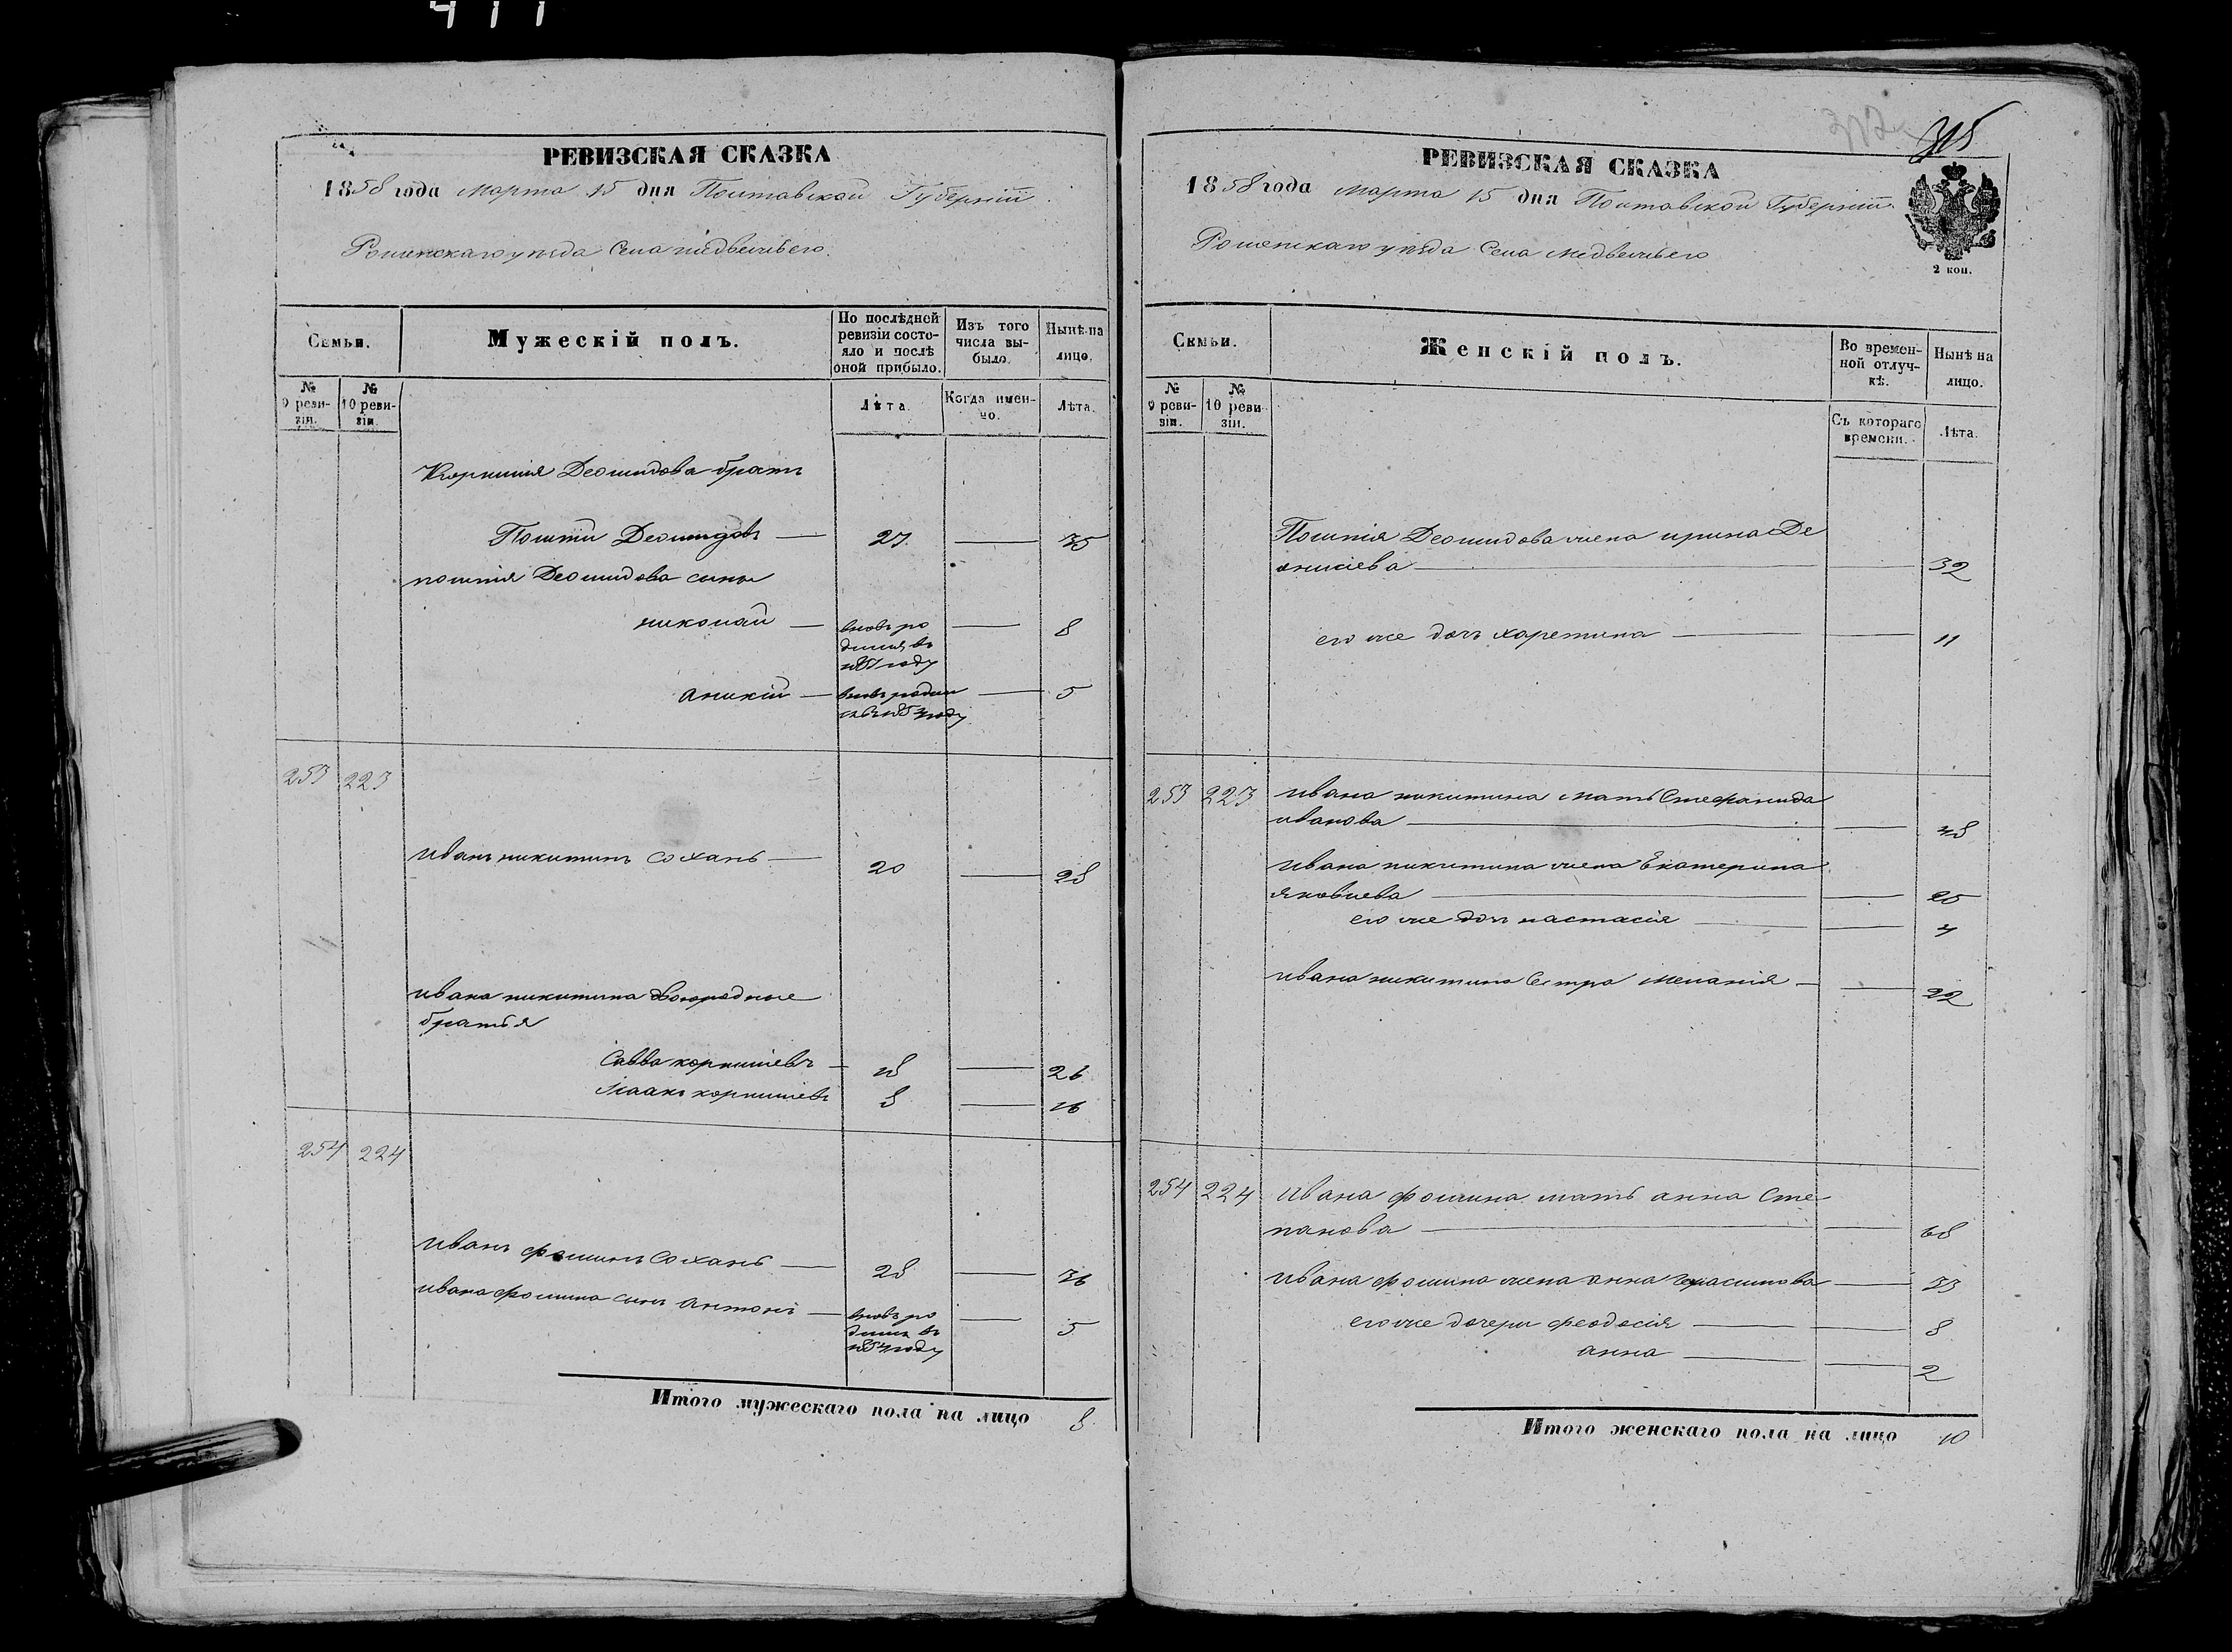 411
РЕВИЗСКАЯ СКАЗКА
1858 года Марта 15 дня Полтавской Губерніи
Роменскаго уѣзда Села медвежьего.
Семьи.
Мужескій полъ.
По послѣдней ревизіи состояло и послѣ оной прибыло.
Изъ того числа выбыло.
Нынѣ на лицо.
№ 9 ревизіи.
№ 10 ревизіи.
Лѣта.
Когда именно.
Лѣта.
Корнилія Деомидова братъ
Деомидовъ — 27 — 35
Деомидова сыны
николай — вновь ро 8
дился въ
году
аникій — вновь родил 5
году
253 223
иванъ никитинъ Сохань — 20 — 28
ивана никитина двоюродные
братья
Савва корниліевъ — 18 — 26
Исаакъ корниліевъ 8 — 16
254 224
иванъ фоминъ Сохань — 28 — 36
ивана фомина сынъ антонъ — вновь ро — 5
дился въ
году
Итого мужескаго пола на лицо 8
315
РЕВИЗСКАЯ СКАЗКА
1858 года Марта 15 дня Полтавской Губерніи
Роменскаго уѣзда Села Медвежьего
2 коп.
Семьи.
Женскій полъ.
Во временной отлучкѣ.
Нынѣ на лицо.
№ 9 ревизіи.
№ 10 ревизіи.
Съ котораго времени.
Лѣта.
Деомидова жена ирина Де
онисіева — 32
его же дочь харетина — 11
253 223 ивана никитина мать Стефанида
иванова — 48
ивана никитина жена Екатерина
яковлева — 25
его же дочь настасія — 4
ивана никитина Сестра Меланія — 22
254 224 ивана фомина мать анна Сте
панова — 68
ивана фомина жена анна Герасимова — 33
его же дочери феодосія — 8
анна — 2
Итого женскаго пола на лицо 10